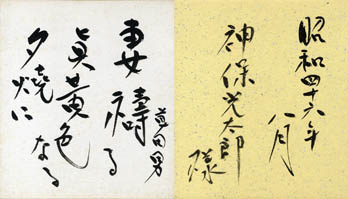 昭和四十六年
八月
神保光太郎
様
草田男
妻禱る
眞黄色なる
夕燒に